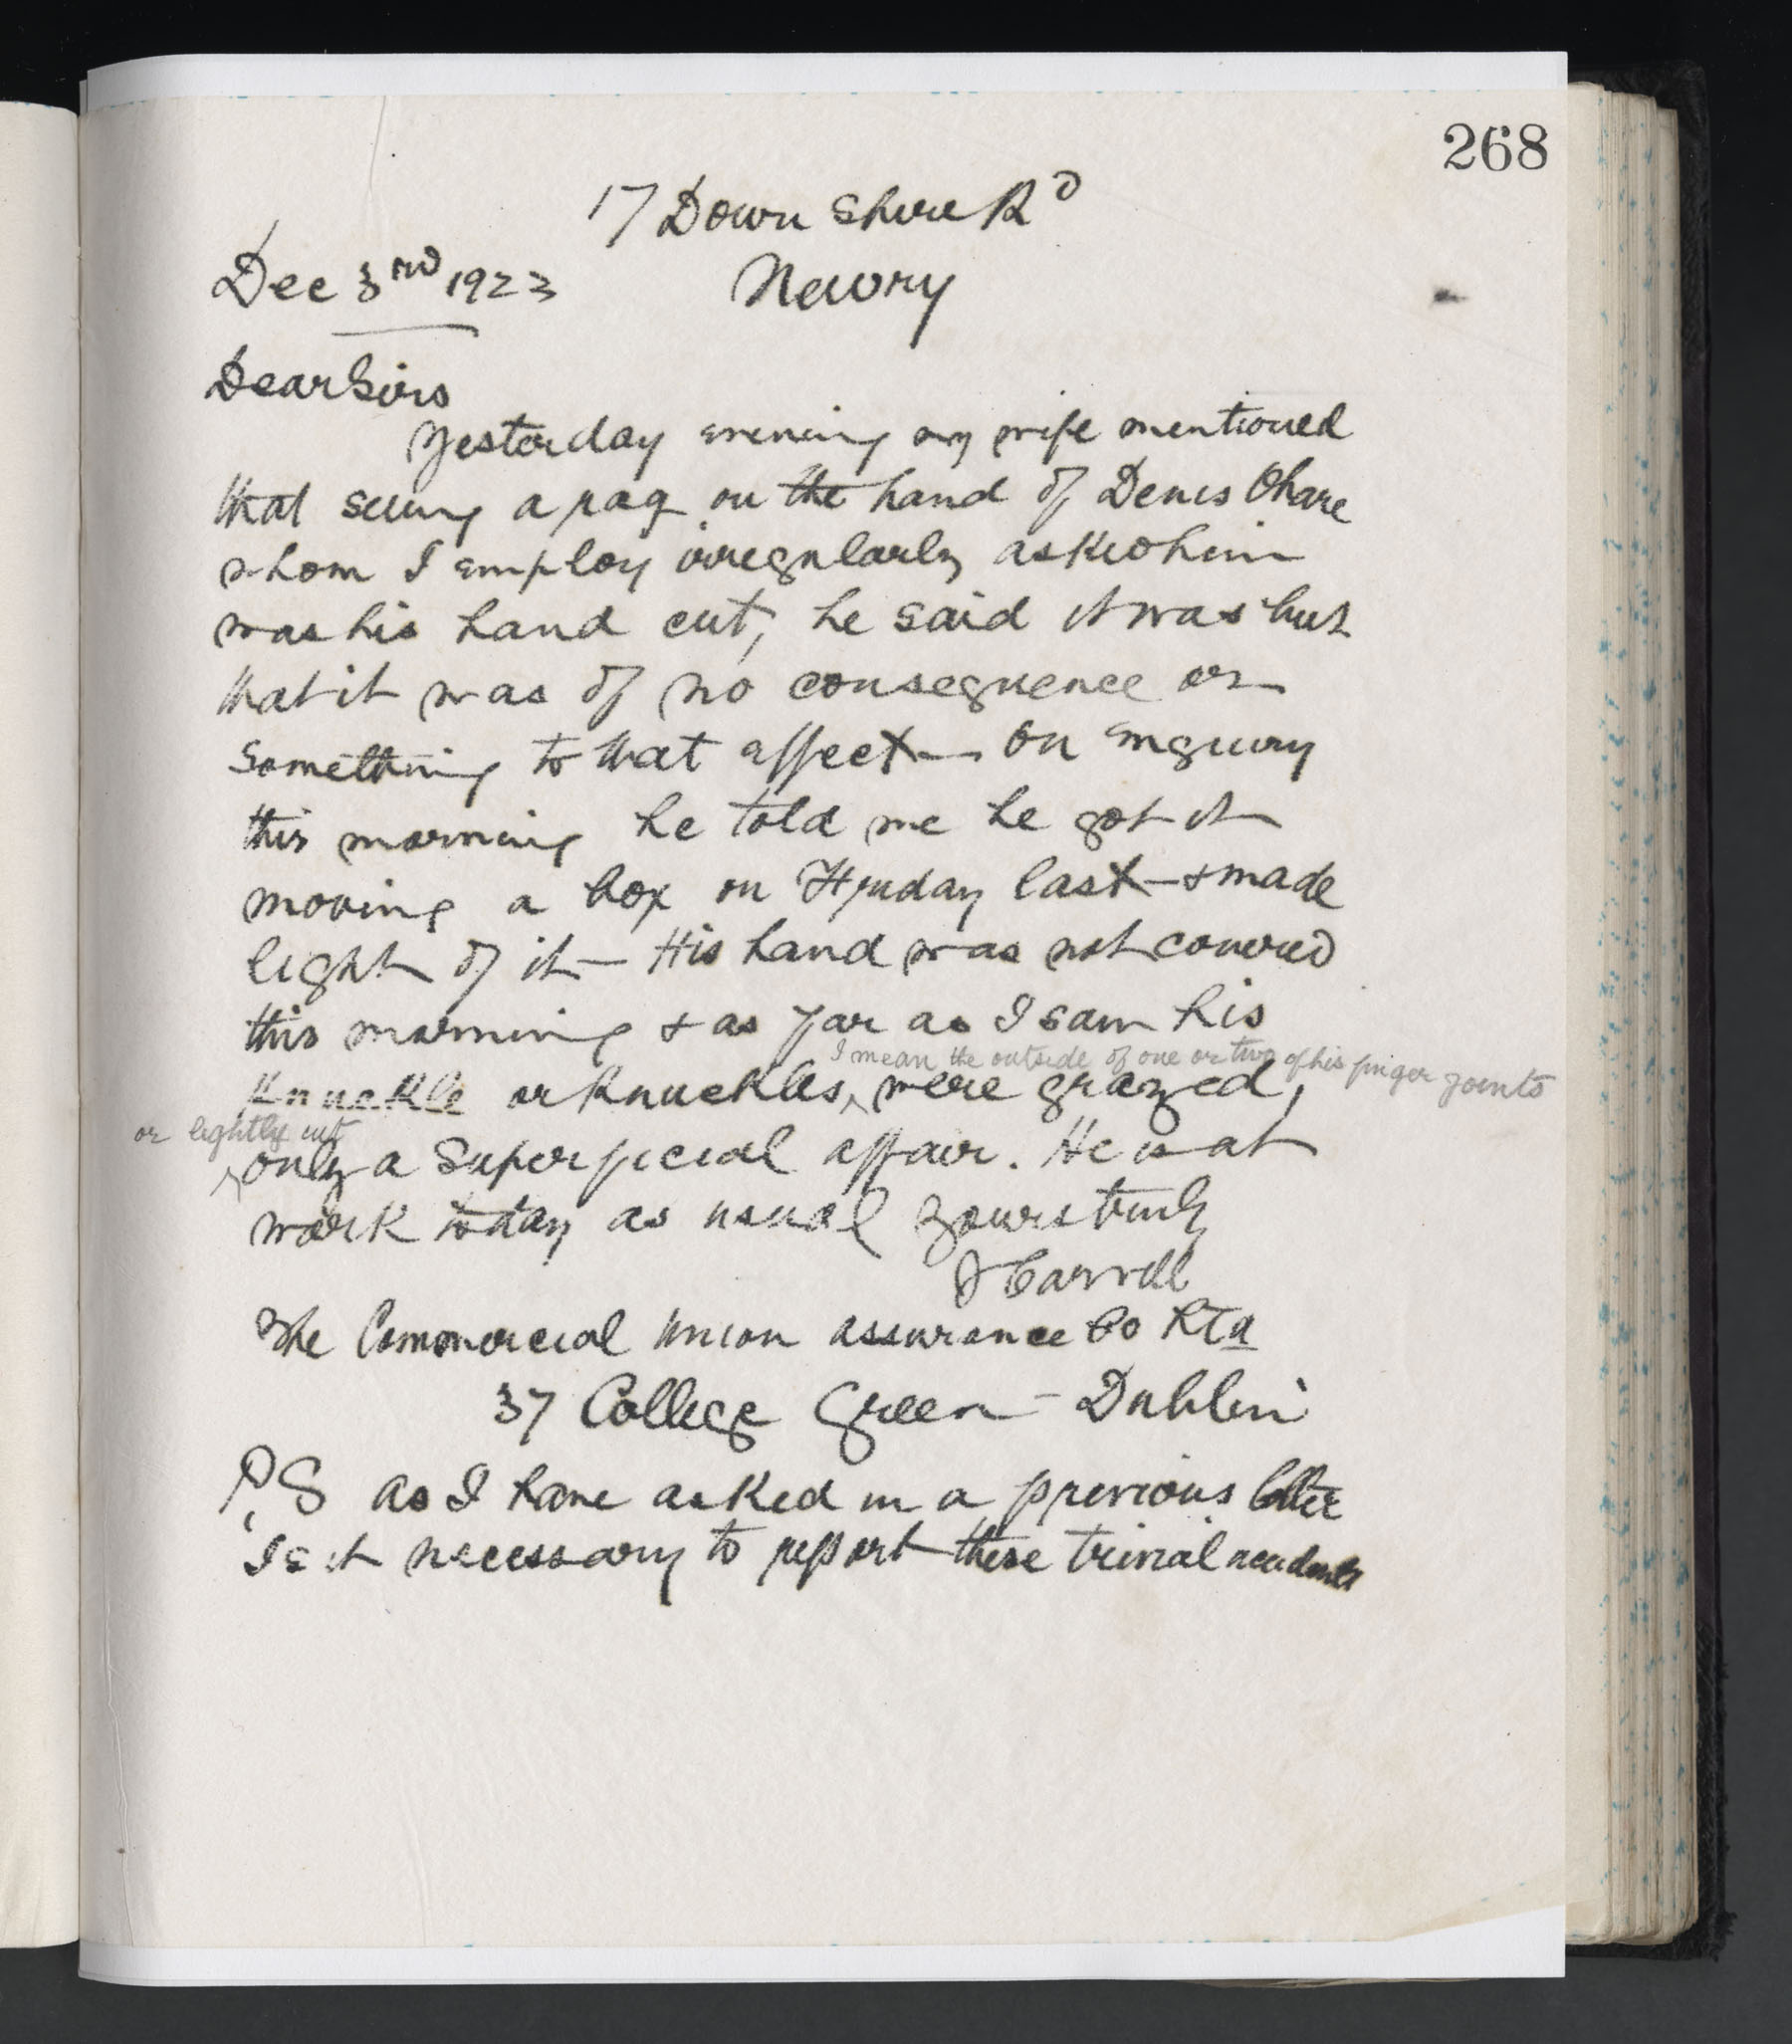 268
17 Downshire Rd
Dec 3rd 1923 Newry
Dear Sirs
Yesterday evening my wife mentioned
that seeing a rag on the hand of Denis Ohare
whom I employ irregularly asked him
was his hand cut, he said it was but
that it was of no consequence or
something to that effect — On enquiry
this morning he told me he got it
moving a box on Friday last — & made
light of it — His hand was not covered
this morning & as far as I saw his
I mean the outside of one or two of his finger joints
knuckle or knuckles, were grazed,
or lightly cut
only a superficial affair. He is at
work today as usual Yours truly
J Carroll
The Commercial Union Assurance Co Ltd
37 College Green - Dublin
P.S as I have asked in a previous letter
Is it necessary to report these trivial accidents